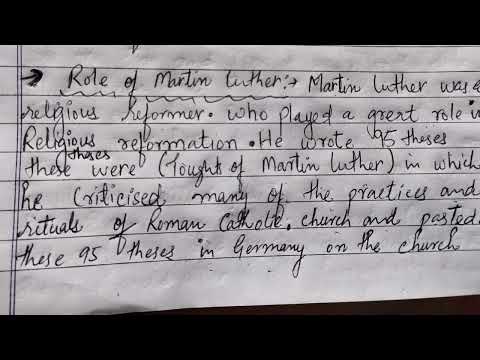 → Role of Martin Luther:→ Martin Luther was a
relgious reformer. who played a grert role in
Religious reformation. He wrote 95 theses
theses
these were (Tought of Martin Luther) in which
he criticised many of the practices and
rituals of Roman Catholic. church and pasted
these 95 theses in Germany on the church